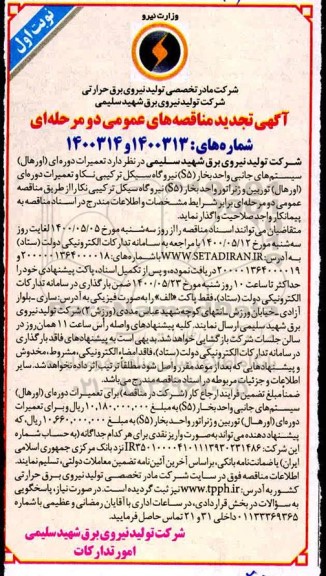 نوبت اول
وزارت نیرو
شرکت مادر تخصصی تولید نیروی برق حرارتی
شرکت تولید نیروی برق شهید سلیمی
آگهی تجدید مناقصه‌های عمومی دو مرحله‌ای
شماره‌های: ۱۴۰۰۳۱۳ و ۱۴۰۰۳۱۴
شرکت تولید نیروی برق شهید سلیمی در نظر دارد تعمیرات دوره‌ای (اورهال)
سیستم‌های جانبی واحد بخار (S5) نیروگاه سیکل ترکیبی نکا و تعمیرات دوره‌ای
(اورهال) توربین و ژنراتور واحد بخار (S5) نیروگاه سیکل ترکیبی نکا را از طریق مناقصه
عمومی دو مرحله‌ای برابر شرایط مشخصات و اطلاعات مندرج در اسناد مناقصه به
پیمانکار واجد صلاحیت واگذار نماید.
متقاضیان می‌توانند اسناد مناقصه را از روز سه‌شنبه مورخ ۱۴۰۰/۰۵/۰۵ لغایت روز
سه‌شنبه مورخ ۱۴۰۰/۰۵/۱۲ با مراجعه به سامانه تدارکات الکترونیکی دولت (ستاد)
به آدرس: WWW.SETADIRAN.IR با شماره‌های: ۲۰۰۰۰۰۱۳۶۴۰۰۰۰۱۸ و
۲۰۰۰۰۰۱۳۶۴۰۰۰۰۱۹ دریافت نموده و پس از تکمیل اسناد، پاکت پیشنهادی خود را
حداکثر تا ساعت ۱۰ روز شنبه مورخ ۱۴۰۰/۰۵/۲۳ ضمن بارگذاری در سامانه تدارکات
الکترونیکی دولت (ستاد)، فقط پاکت «الف» را به صورت فیزیکی به آدرس: ساری-بلوار
آزادی-خیابان ورزش-انتهای کوچه شهید عباس صمدی (ورزش ۲) شرکت تولید نیروی
برق شهید سلیمی ارسال نمایند. کلیه پیشنهادهای واصله رأس ساعت ۱۱ همان روز در
سالن جلسات شرکت بازگشایی خواهد شد. بدیهی است به پیشنهادهای فاقد بارگذاری
در سامانه تدارکات الکترونیکی دولت (ستاد)، فاقد امضاء الکترونیکی، مشروط، مخدوش
و پیشنهادهایی که بعد از موعد مقرر واصل شود مطلقا ترتیب اثر داده نخواهد شد. سایر
اطلاعات و جزئیات مربوطه در اسناد مناقصه می‌باشد.
ضمناً مبلغ تضمین فرآیند ارجاع کار (شرکت در مناقصه) برای تعمیرات دوره‌ای (اورهال)
سیستم‌های جانبی واحد بخار (S5) به مبلغ ۱۰.۱۸۰.۰۰۰.۰۰۰ ریال و برای تعمیرات
دوره‌ای (اورهال) توربین و ژنراتور واحد بخار (S5) به مبلغ ۱۰.۶۶۰.۰۰۰.۰۰۰ ریال، که
پیشنهاددهنده می‌تواند به صورت واریز نقدی برای هر کدام جداگانه (به حساب شماره
این شرکت: نزد بانک مرکزی جمهوری اسلامی
ایران) یا ضمانت‌نامه بانکی، براساس آخرین آئین‌نامه تضمین معاملات دولتی، تسلیم نمایند.
اطلاعات مناقصه فوق در سایت شرکت مادر تخصصی تولید نیروی برق حرارتی
کشور به آدرس: www.tpph.ir نیز ثبت گردیده است. در صورت نیاز، پاسخگویی
به سؤالات در بخش قراردادی، در ساعات اداری با آقایان رمضانی و عظیمی با شماره
۰۱۱۳۳۳۶۹۳۶۵ داخلی ۳۱ و ۲۱ تماس حاصل فرمایید.
شرکت تولید نیروی برق شهید سلیمی
امور تدارکات